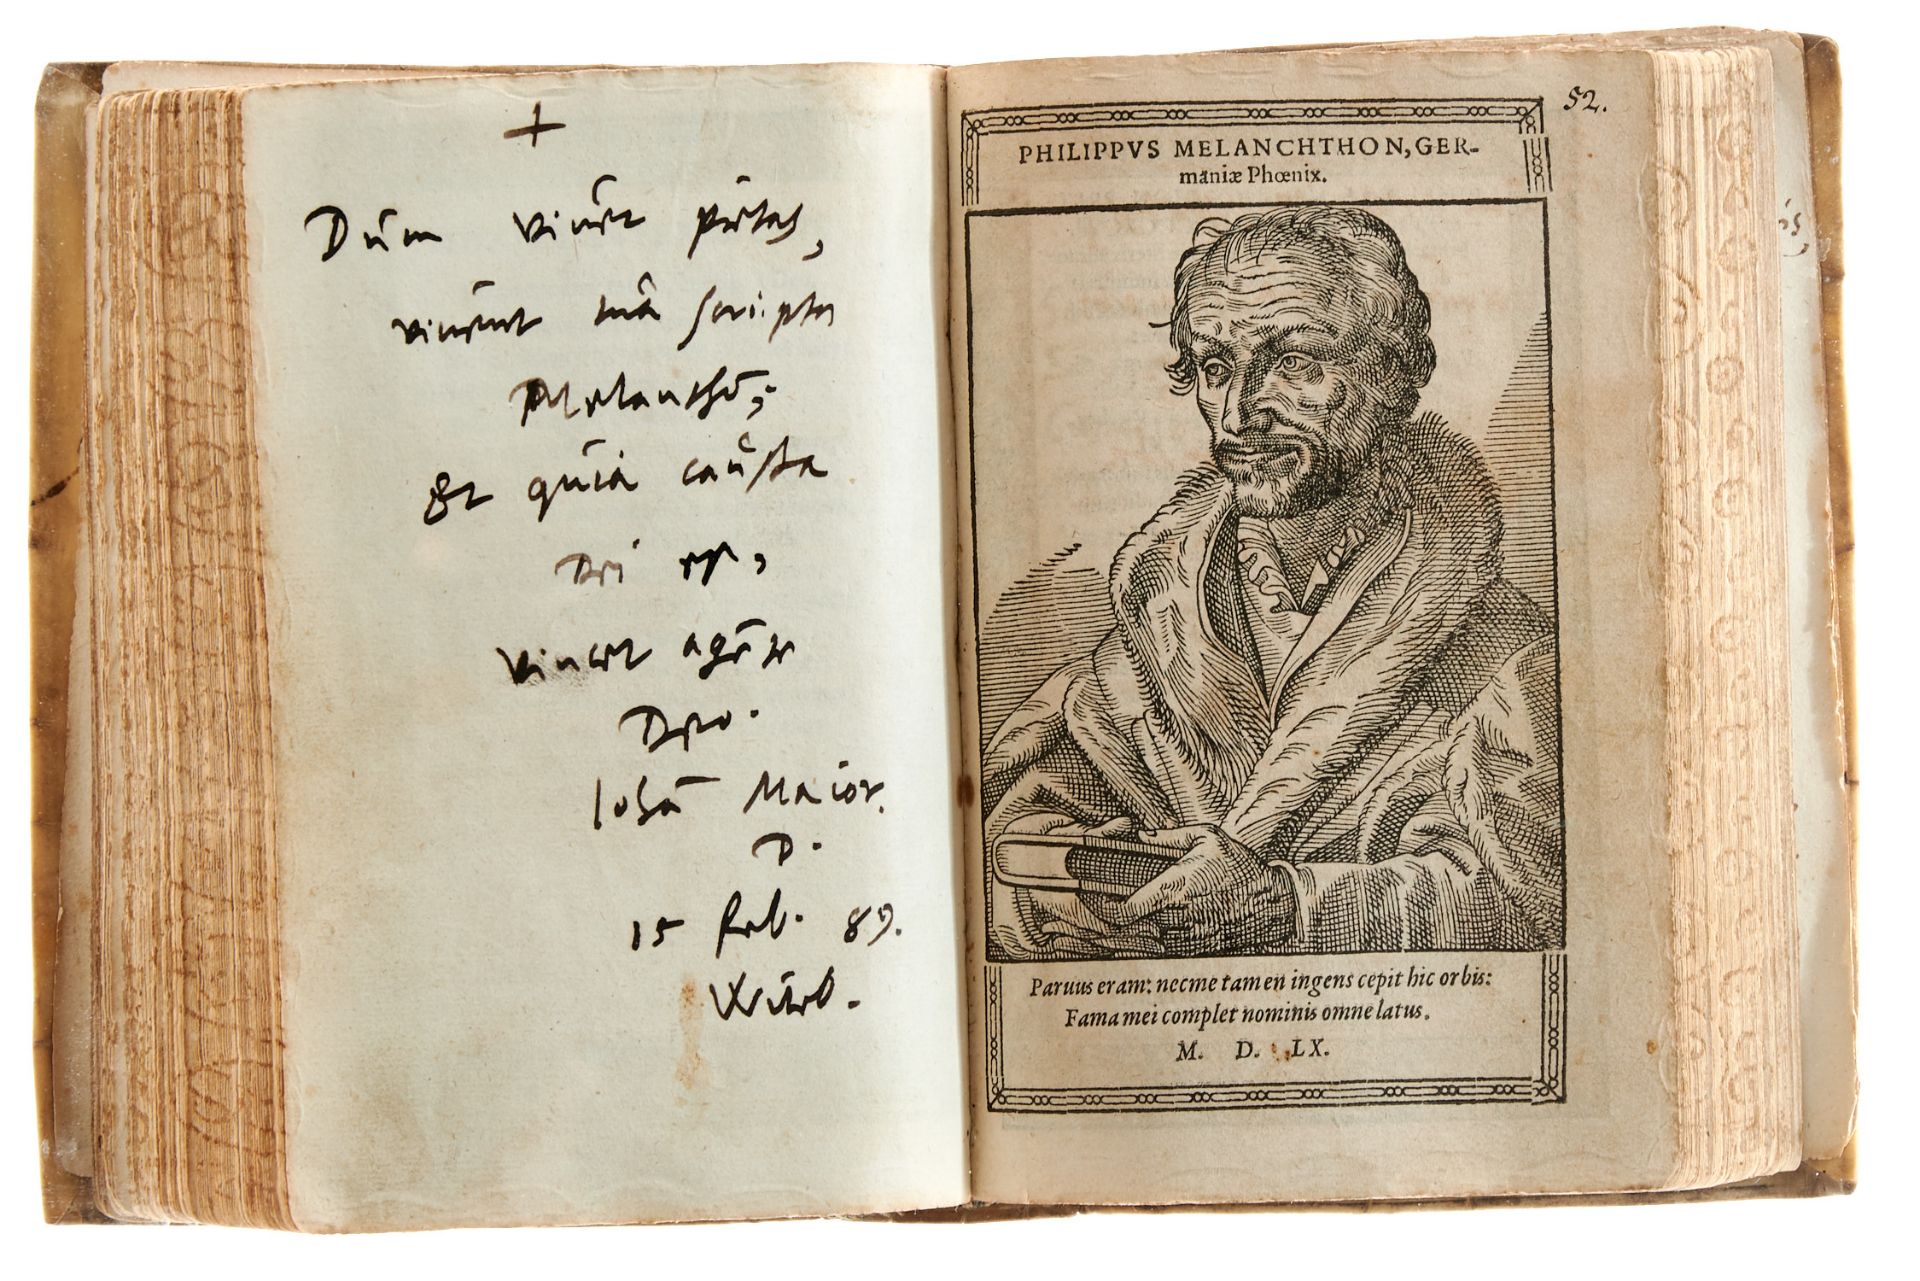 +
Dum viuet pietas,
viuent tua scripta
Melanthō;
Et quia causa
Dei est,
vincet agēte
Deo.
Iohā Maior.
D.
15 Feb. 89.
Witeb.
52.
PHILIPPVS MELANCHTHON, GER-
maniæ Phœnix.
Paruus eram: nec me tamen ingens cepit hic orbis:
Fama mei complet nominis omne latus.
M. D. LX.